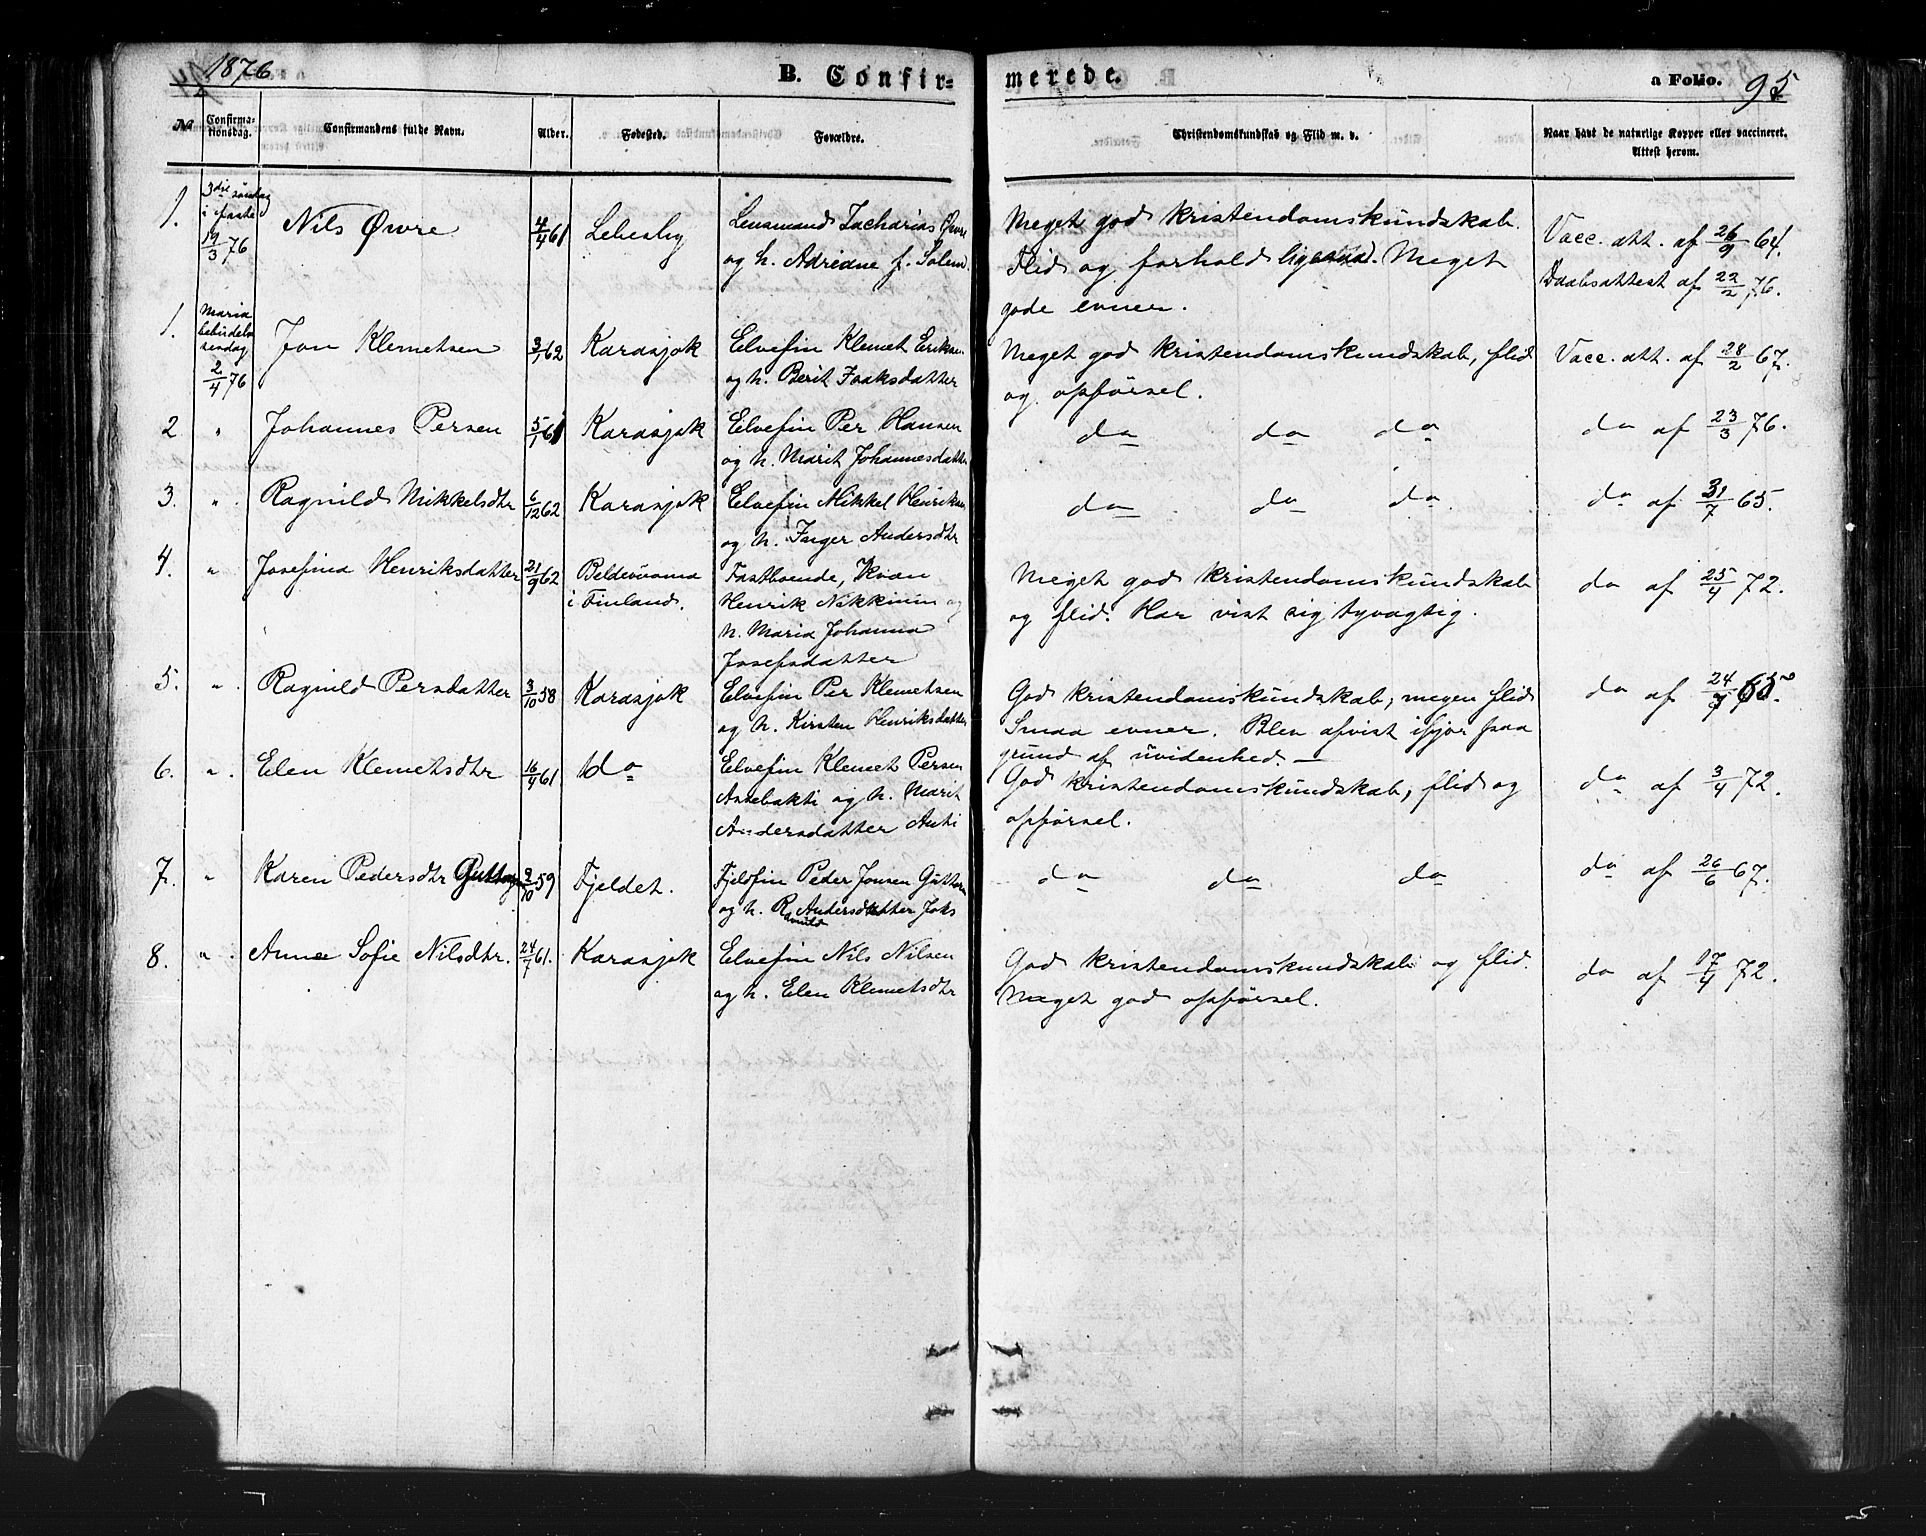 1876
B. Confir-
merede.
a Folio. 95
No
Confirma-
tionsdag.
Confirmandens fulde Navn.
Alder.
Fødested.
Forældre.
Christendomskundskab og Flid m. v.
Naar havt de naturlige Kopper eller vaccineret.
Attest herom.
1.
3die søndag
i faste
19/3 76
Nils Øvre
4/4 61
Lebesby
Lensmand Zacharias Øvre
og h. Adriane f. Solem.
Meget god kristendomskundskab.
Flid og forhold ligesaa. Meget
gode evner.
Vacc. att. af 26/9 64.
Daabsattest af 22/2 76.
1.
Maria
bebudelses
søndag
2/4 76
Jon Klemetsen
3/1 62
Karasjok
Elvefin Klemet Eriksen
og h. Berit Isaksdatter
Meget god kristendomskundskab, flid
og opførsel.
Vacc. att. af 28/2 67.
2 "
Johannes Persen
5/1 61
Karasjok
Elvefin Per Hansen
og h. Marit Johannesdatter
do do do
do af 23/3 76.
3. "
Ragnild Mikkelsdtr
6/12 62
Karasjok
Elvefin Mikkel Henriksen
og h. Inger Andersdtr
do do do
do af 31/7 65.
4. "
Josefina Henriksdatter
21/9 62
Beldovuoma
i Finland.
Fastboende, Kvæn
Henrik Nikkinin og
h. Maria Johanna
Josefsdatter
Meget god kristendomskundskab
og flid. Har vist sig tyvagtig.
do af 25/4 72.
5. "
Ragnild Persdatter
3/10 58
Karasjok
Elvefin Per Klemetsen
og h. Kirsten Henriksdatter
God kristendomskundskab, megen flid
Smaa evner. Blev afvist ifjor paa
grund af uvidenhed. —
do af 24/7 65.
6. "
Elen Klemetsdtr
16/4 61
do
Elvefin Klemet Persen
Assebakti og h. Marit
Andersdatter Anti
God kristendomskundskab, flid og
opførsel.
do af 3/4 72.
7. "
Karen Pedersdtr Guttorm
2/10 59
Fjeldet.
Fjelfin Peder Jonsen Guttorm
og h. Ravnild Andersdatter Joks
do do do
do af 26/6 67.
8. "
Anna Sofie Nilsdtr.
24/7 61.
Karasjok
Elvefin Nils Nilsen
og h. Elen Klemetsdtr
God kristendomskundskab og flid.
Meget god opførsel.
do af 17/4 72.